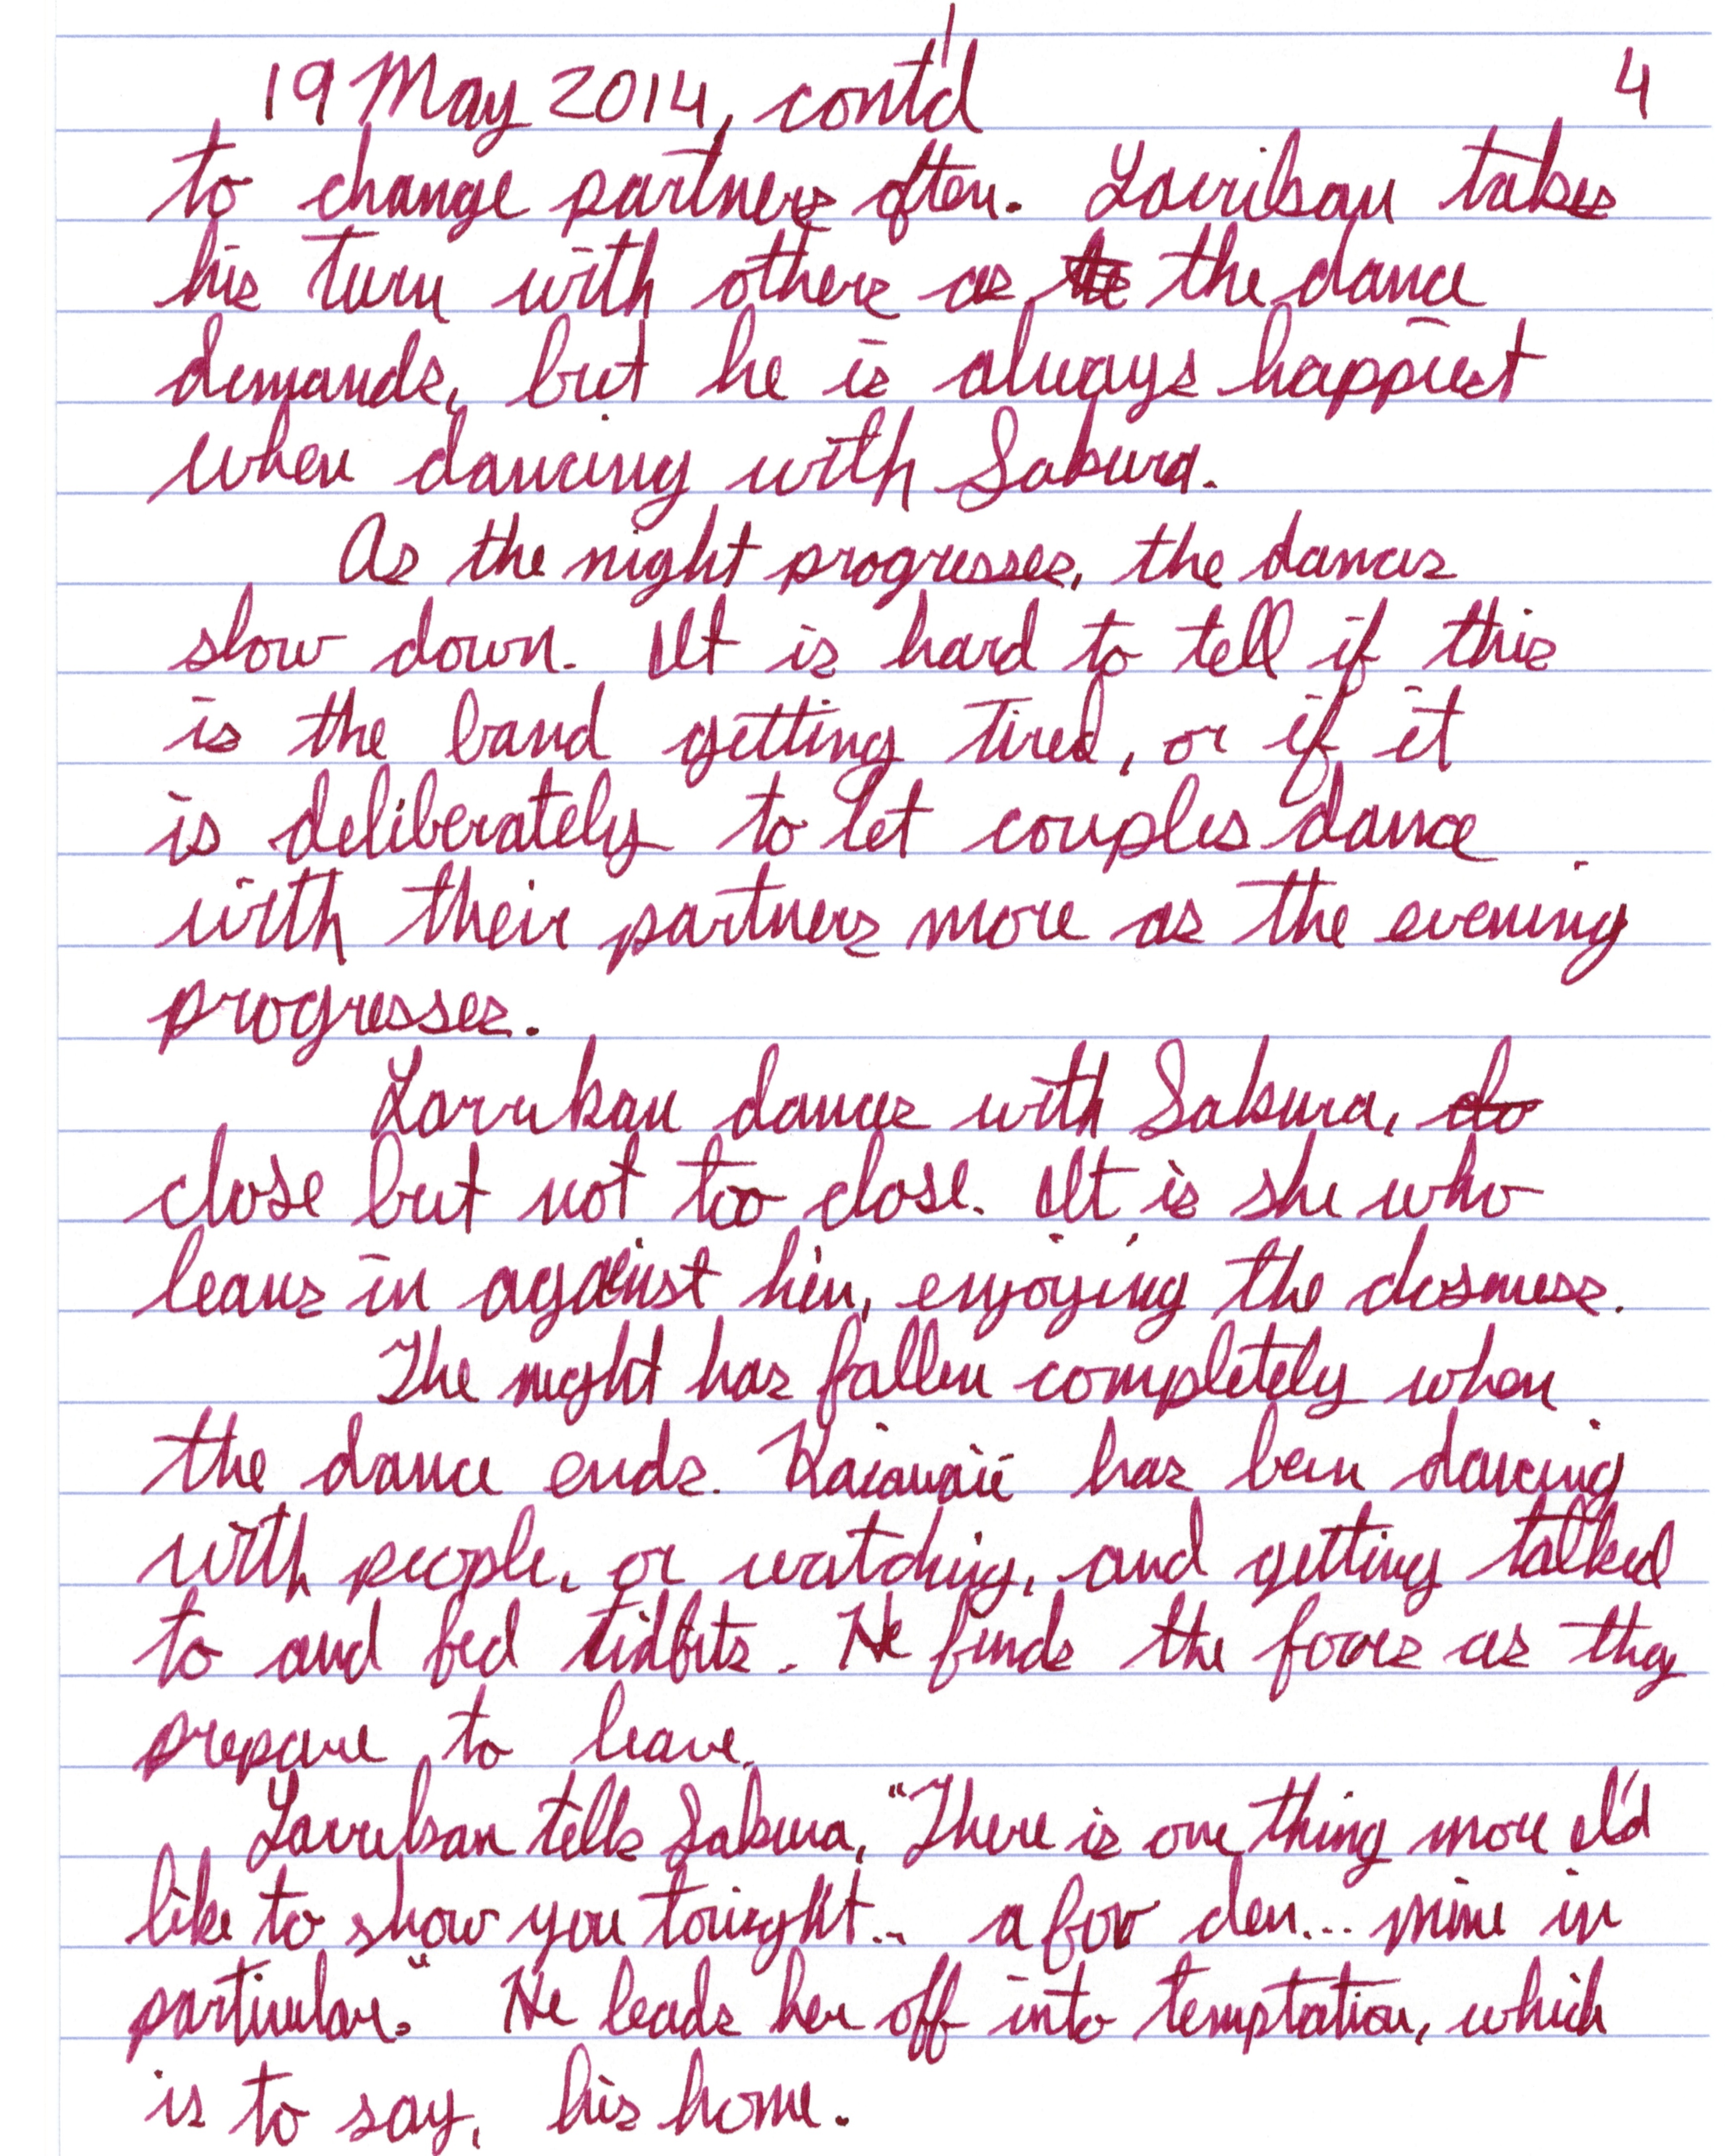 19 May 2014, cont'd 4
to change partners often. Lavrikan takes
his turn with others as the the dance
demands, but he is always happiest
when dancing with Sakura.
As the night progresses, the dances
slow down. It is hard to tell if this
is the band getting tired, or if it
is deliberately to let couples dance
with their partners more as the evening
progresses.
Lavrikan dances with Sakura, do
close but not too close. It is she who
leans in against him, enjoying the closeness.
The night has fallen completely when
the dance ends. has been dancing
with people, or watching, and getting talked
to and fed tidbits. He finds the foxes as they
prepare to leave.
Lavrikan tells Sakura, "There is one thing more I'd
like to show you tonight... a fox den... mine in
particular." He leads her off into temptation, which
is to say, his home.